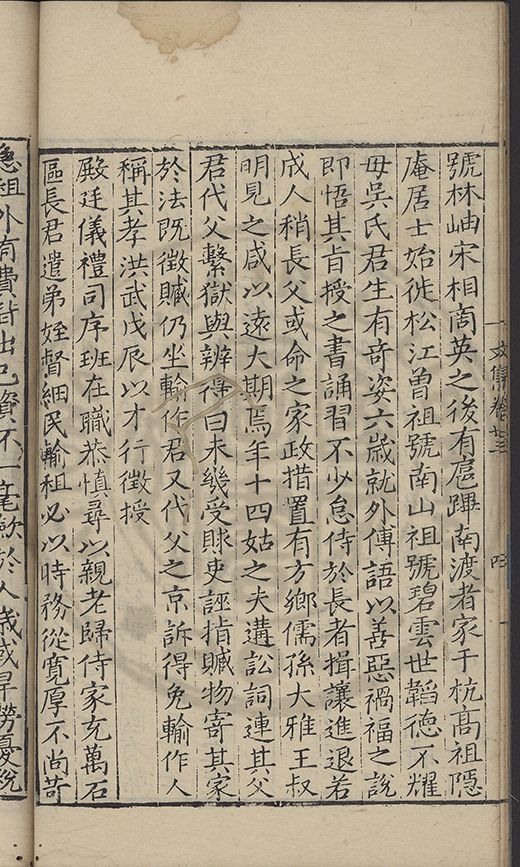 號林岫宋相商英之後有扈蹕南渡者家于杭高祖隱
庵居士始徙松江曾祖號南山祖號碧雲世韜德不耀
毋吳氏君生有奇姿六歲就外傅語以善惡禍福之說
即悟其旨授之書誦習不少怠侍於長者揖讓進退若
成人稍長父或命之家政措置有方鄉儒孫大雅王叔
明見之咸以遠大期焉年十四姑之夫遘訟詞連其父
君代父繫獄與辨得白未幾受賕吏誣指贓物寄其家
於法既徵贓仍坐輸作君又代父之京訴得免輸作人
稱其孝洪武戊辰以才行徵授
殿廷儀禮司序班在職恭慎尋以親老歸侍家充萬石
區長君遣弟姪督細民輸租必以時務從寬厚不尚苛
急租外有費皆出己資不一毫歛於人歲咸昇勞憂稅
文集卷廿三
四